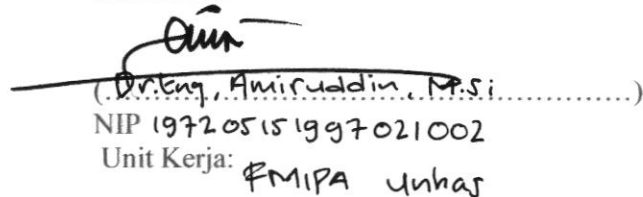 (Dr.Eng, Amiruddin, M.Si)
NIP 197205151997021002
Unit Kerja: FMIPA Unhas